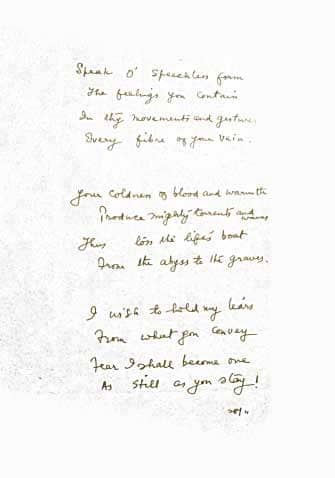 Speak O' Speechless form
The feelings you contain
In thy movements and gestures
Every fibre of your vein.
Your coldness of blood and warmth
Produce mighty torrents and waves
Thus toss the life's boat
From the abyss to the graves.
I wish to hold my tears
From what you convey
Fear I shall become one
As still as you stay!